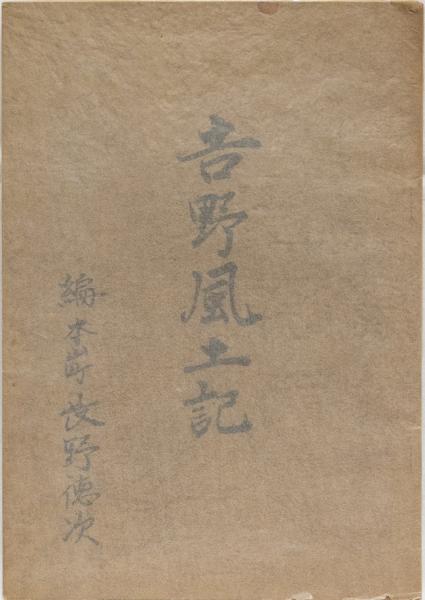 吉野風土記
編本町長野徳次